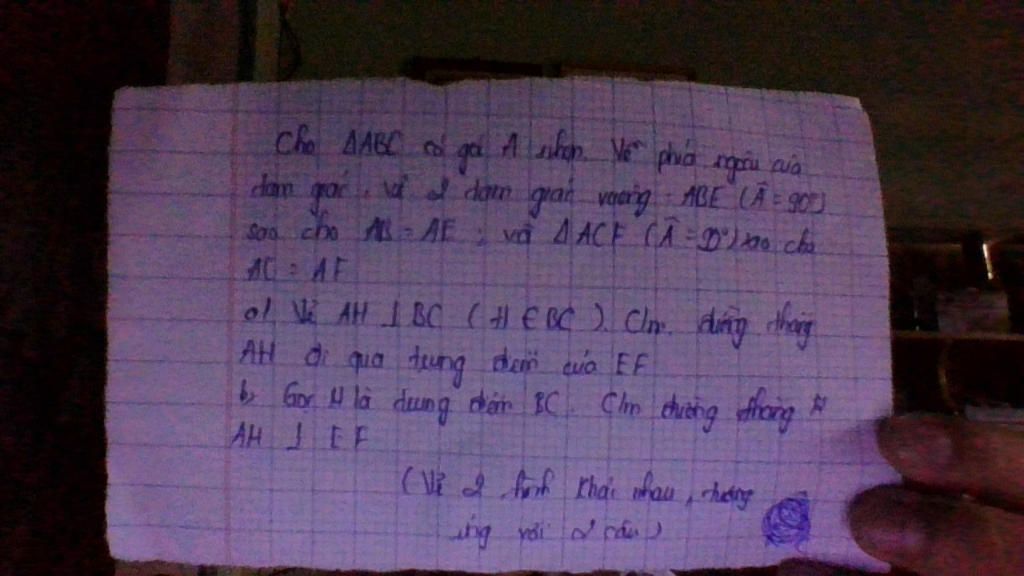 Cho ΔABC có góc A nhọn. Vẽ phía ngoài của
tam giác, vẽ 2 tam giác vuông: ABE (Â = 90°)
sao cho AB = AE; và ΔACF (Â = 90°) sao cho
AC = AF
a) Vẽ AH ⊥ BC (H ∈ BC). Cm. đường thẳng
AH đi qua trung điểm của EF
b) Gọi H là trung điểm BC. Cm đường thẳng
AH ⊥ EF
(Vẽ 2 hình khác nhau, tương
ứng với 2 câu)